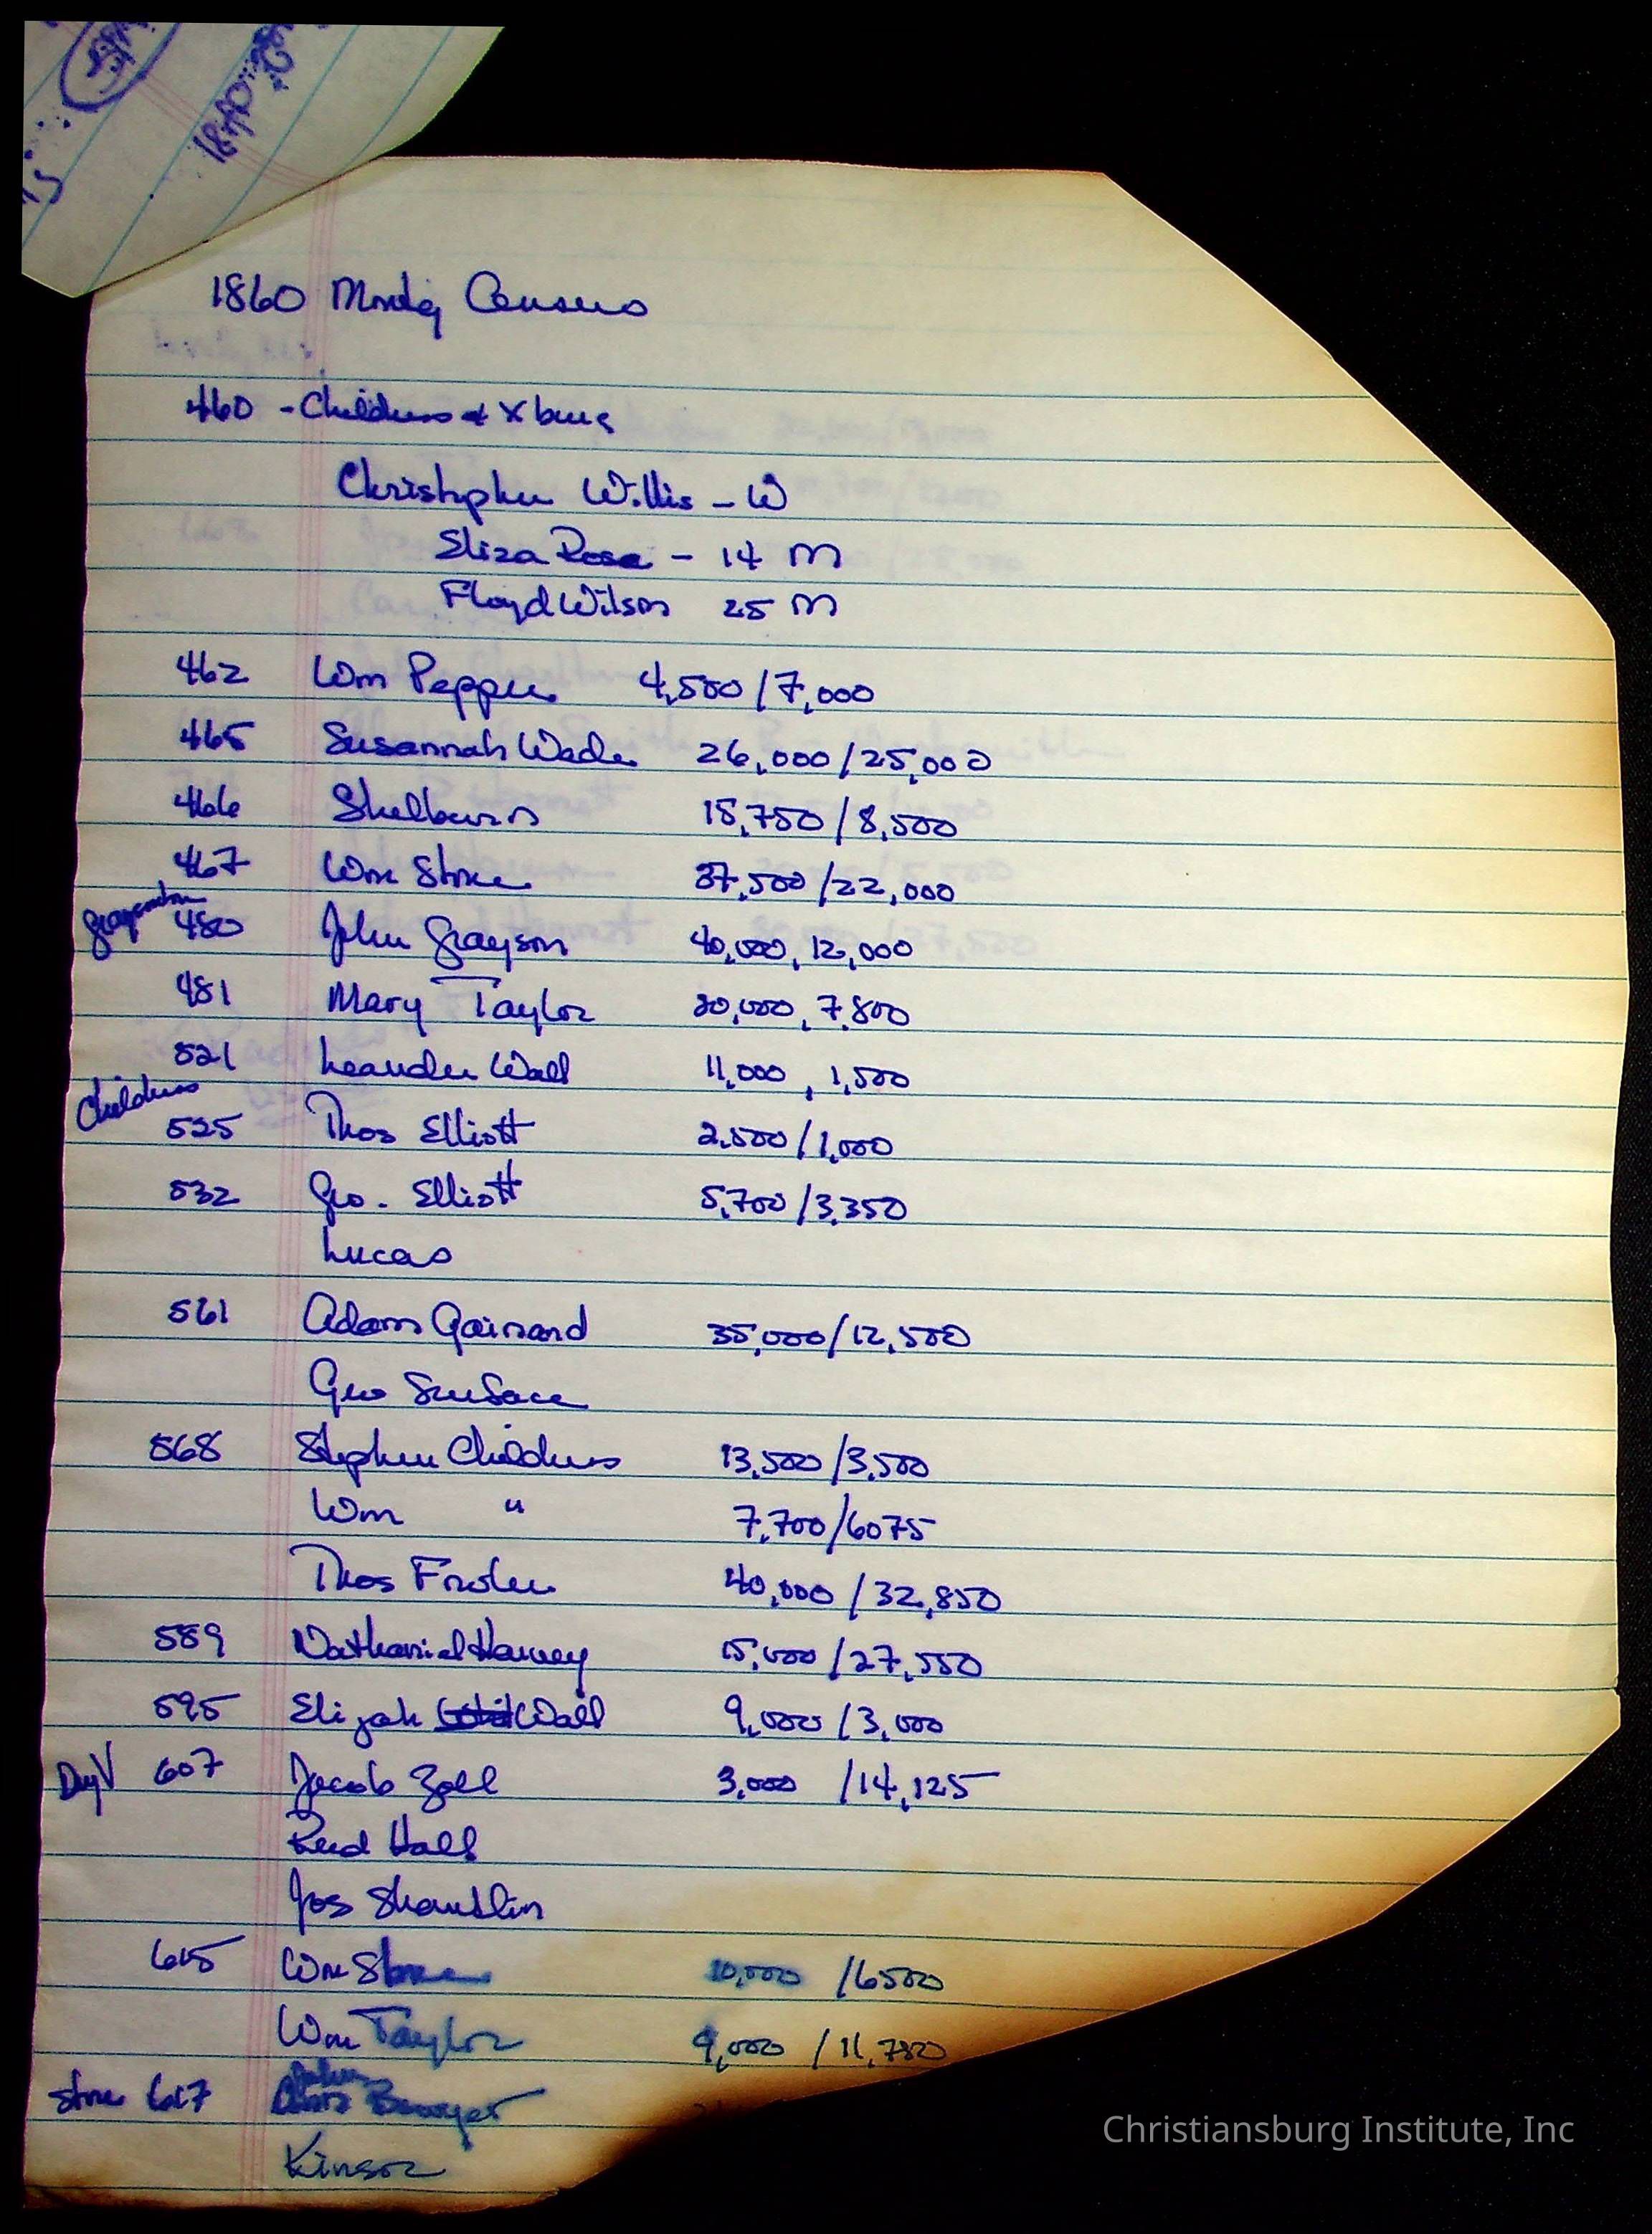 1860 Montg Census
460 - Childress & Xburg
Christopher Willis - W
Eliza Rose - 14 M
Floyd Wilson 25 M
462 Wm Pepper 4,500/7,000
465 Susannah Wade 26,000/25,000
466 Shelburn 15,750/8,500
467 Wm Stone 37,500/22,000
Graysontown
480 John Grayson 40,000, 12,000
481 Mary Taylor 20,000, 7,800
521 Leander Wall 11,000, 1,500
Childress
525 Thos Elliott 2,500/1,000
532 Geo. Elliott 5,700/3,350
Lucas
561 Adam 35,000/12,500
Geo Surface
568 Stephen Childress 13,500/3,500
Wm " 7,700/6075
Thos 40,000/32,850
589 Nathaniel Harvey 15,000/27,550
595 Elijah Wall 9,000/3,000
607 Jacob Zoll 3,000/14,125
Reed Hall
Jos
615 Wm Stone 10,000/6500
Wm Taylor 9,000/11,780
617
Kinser
Christiansburg Institute, Inc